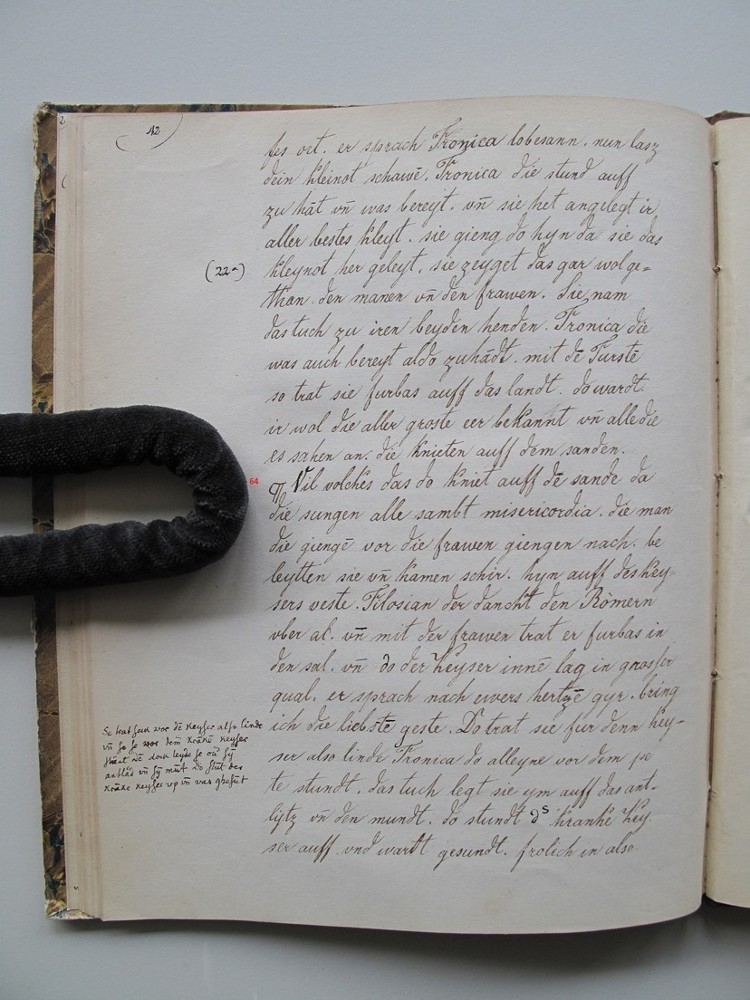 42
fes ort. er sprach Fronica lobesann. nun lasz
dein kleinot schawē. Fronica die stund auff
zu hāt vn̄ was bereyt. vn̄ sie het angelegt ir
aller bestes kleyt. sie gieng do hyn da sie das
(22ᵃ)
kleynot her geleyt. sie zeyget das gar wolge=
than. den manen vn̄ den frawen. Sie nam
das tuch zu iren beyden henden. Fronica die
was auch bereyt aldo zuhādt. mit dē Furstē
so trat sie furbas auff das landt. do wardt
ir wol die aller groste eer bekannt vn̄ alle die
es sahen an. die knieten auff dem sanden.
64
¶ Vil volckes das do kniet auff dē sande da
die sungen alle sambt misericordia. die man
die giengē vor die frawen giengen nach. be
leytten sie vn̄ kamen schir. hyn auff des key-
sers veste. Filosian der danckt den Römern
vber al. vn̄ mit der frawen trat er furbas in
den sal. vn̄ do der keyser innē lag in grosser
qual. er sprach nach ewers hertzē gyr. bring
ich die liebstē geste. Do trat sie fur denn key-
ser also linde Fronica do alleyne vor dem pe
te stundt. das tuch legt sie ym auff das ant-
lytz vn̄ den mundt. do stundt dˢ kranke key
ser auff vnd wardt gesundt. frolich in also
Se trat feur vor dē keyser also linde
vn̄ se vor dem krākē keyser
krāke keyser vp vn̄ was ghesūt